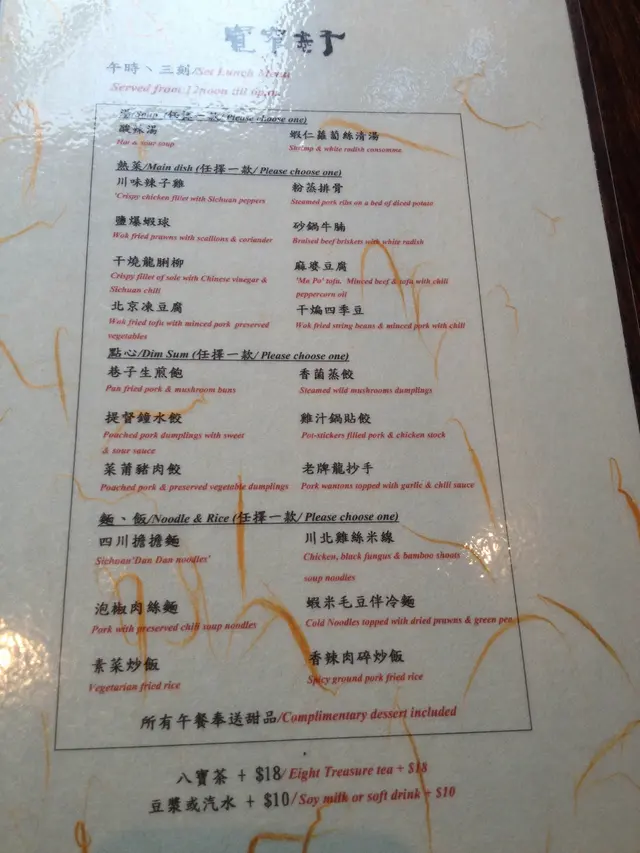 寬窄巷子
午時、三刻/Set Lunch Menu
Served from 12noon till 6pm
湯/Soup (任擇一款/ Please choose one)
酸辣湯 蝦仁蘿蔔絲清湯
Hot & sour soup Shrimp & white radish consomme
熱菜/Main dish (任擇一款/ Please choose one)
川味辣子雞 粉蒸排骨
'Crispy chicken fillet with Sichuan peppers Steamed pork ribs on a bed of diced potato
鹽爆蝦球 砂鍋牛腩
Wok fried prawns with scallions & coriander Braised beef briskets with white radish
干燒龍脷柳 麻婆豆腐
Crispy fillet of sole with Chinese vinegar & 'Ma Po' tofu. Minced beef & tofu with chili
Sichuan chili peppercorn oil
北京凍豆腐 干煸四季豆
Wok fried tofu with minced pork preserved Wok fried string beans & minced pork with chili
vegetables
點心/Dim Sum (任擇一款/ Please choose one)
巷子生煎飽 香菌蒸餃
Pan fried pork & mushroom buns Steamed wild mushrooms dumplings
提督鐘水餃 雞汁鍋貼餃
Poached pork dumplings with sweet Pot-stickers filled pork & chicken stock
& sour sauce
菜莆豬肉餃 老牌龍抄手
Poached pork & preserved vegetable dumplings Pork wantons topped with garlic & chili sauce
麵、飯/Noodle & Rice (任擇一款/ Please choose one)
四川擔擔麵 川北雞絲米線
Sichuan'Dan Dan noodles' Chicken, black fungus & bamboo shoots
soup noodles
泡椒肉絲麵 蝦米毛豆伴冷麵
Pork with preserved chili soup noodles Cold Noodles topped with dried prawns & green pea
素菜炒飯 香辣肉碎炒飯
Vegetarian fried rice Spicy ground pork fried rice
所有午餐奉送甜品/Complimentary dessert included
八寶茶 + $18/ Eight Treasure tea + $18
豆漿或汽水 + $10/ Soy milk or soft drink + $10